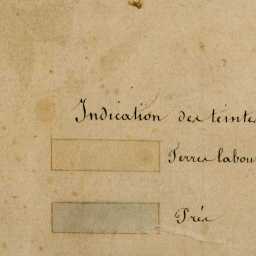 Indication des teintes
Terres labou
Prés